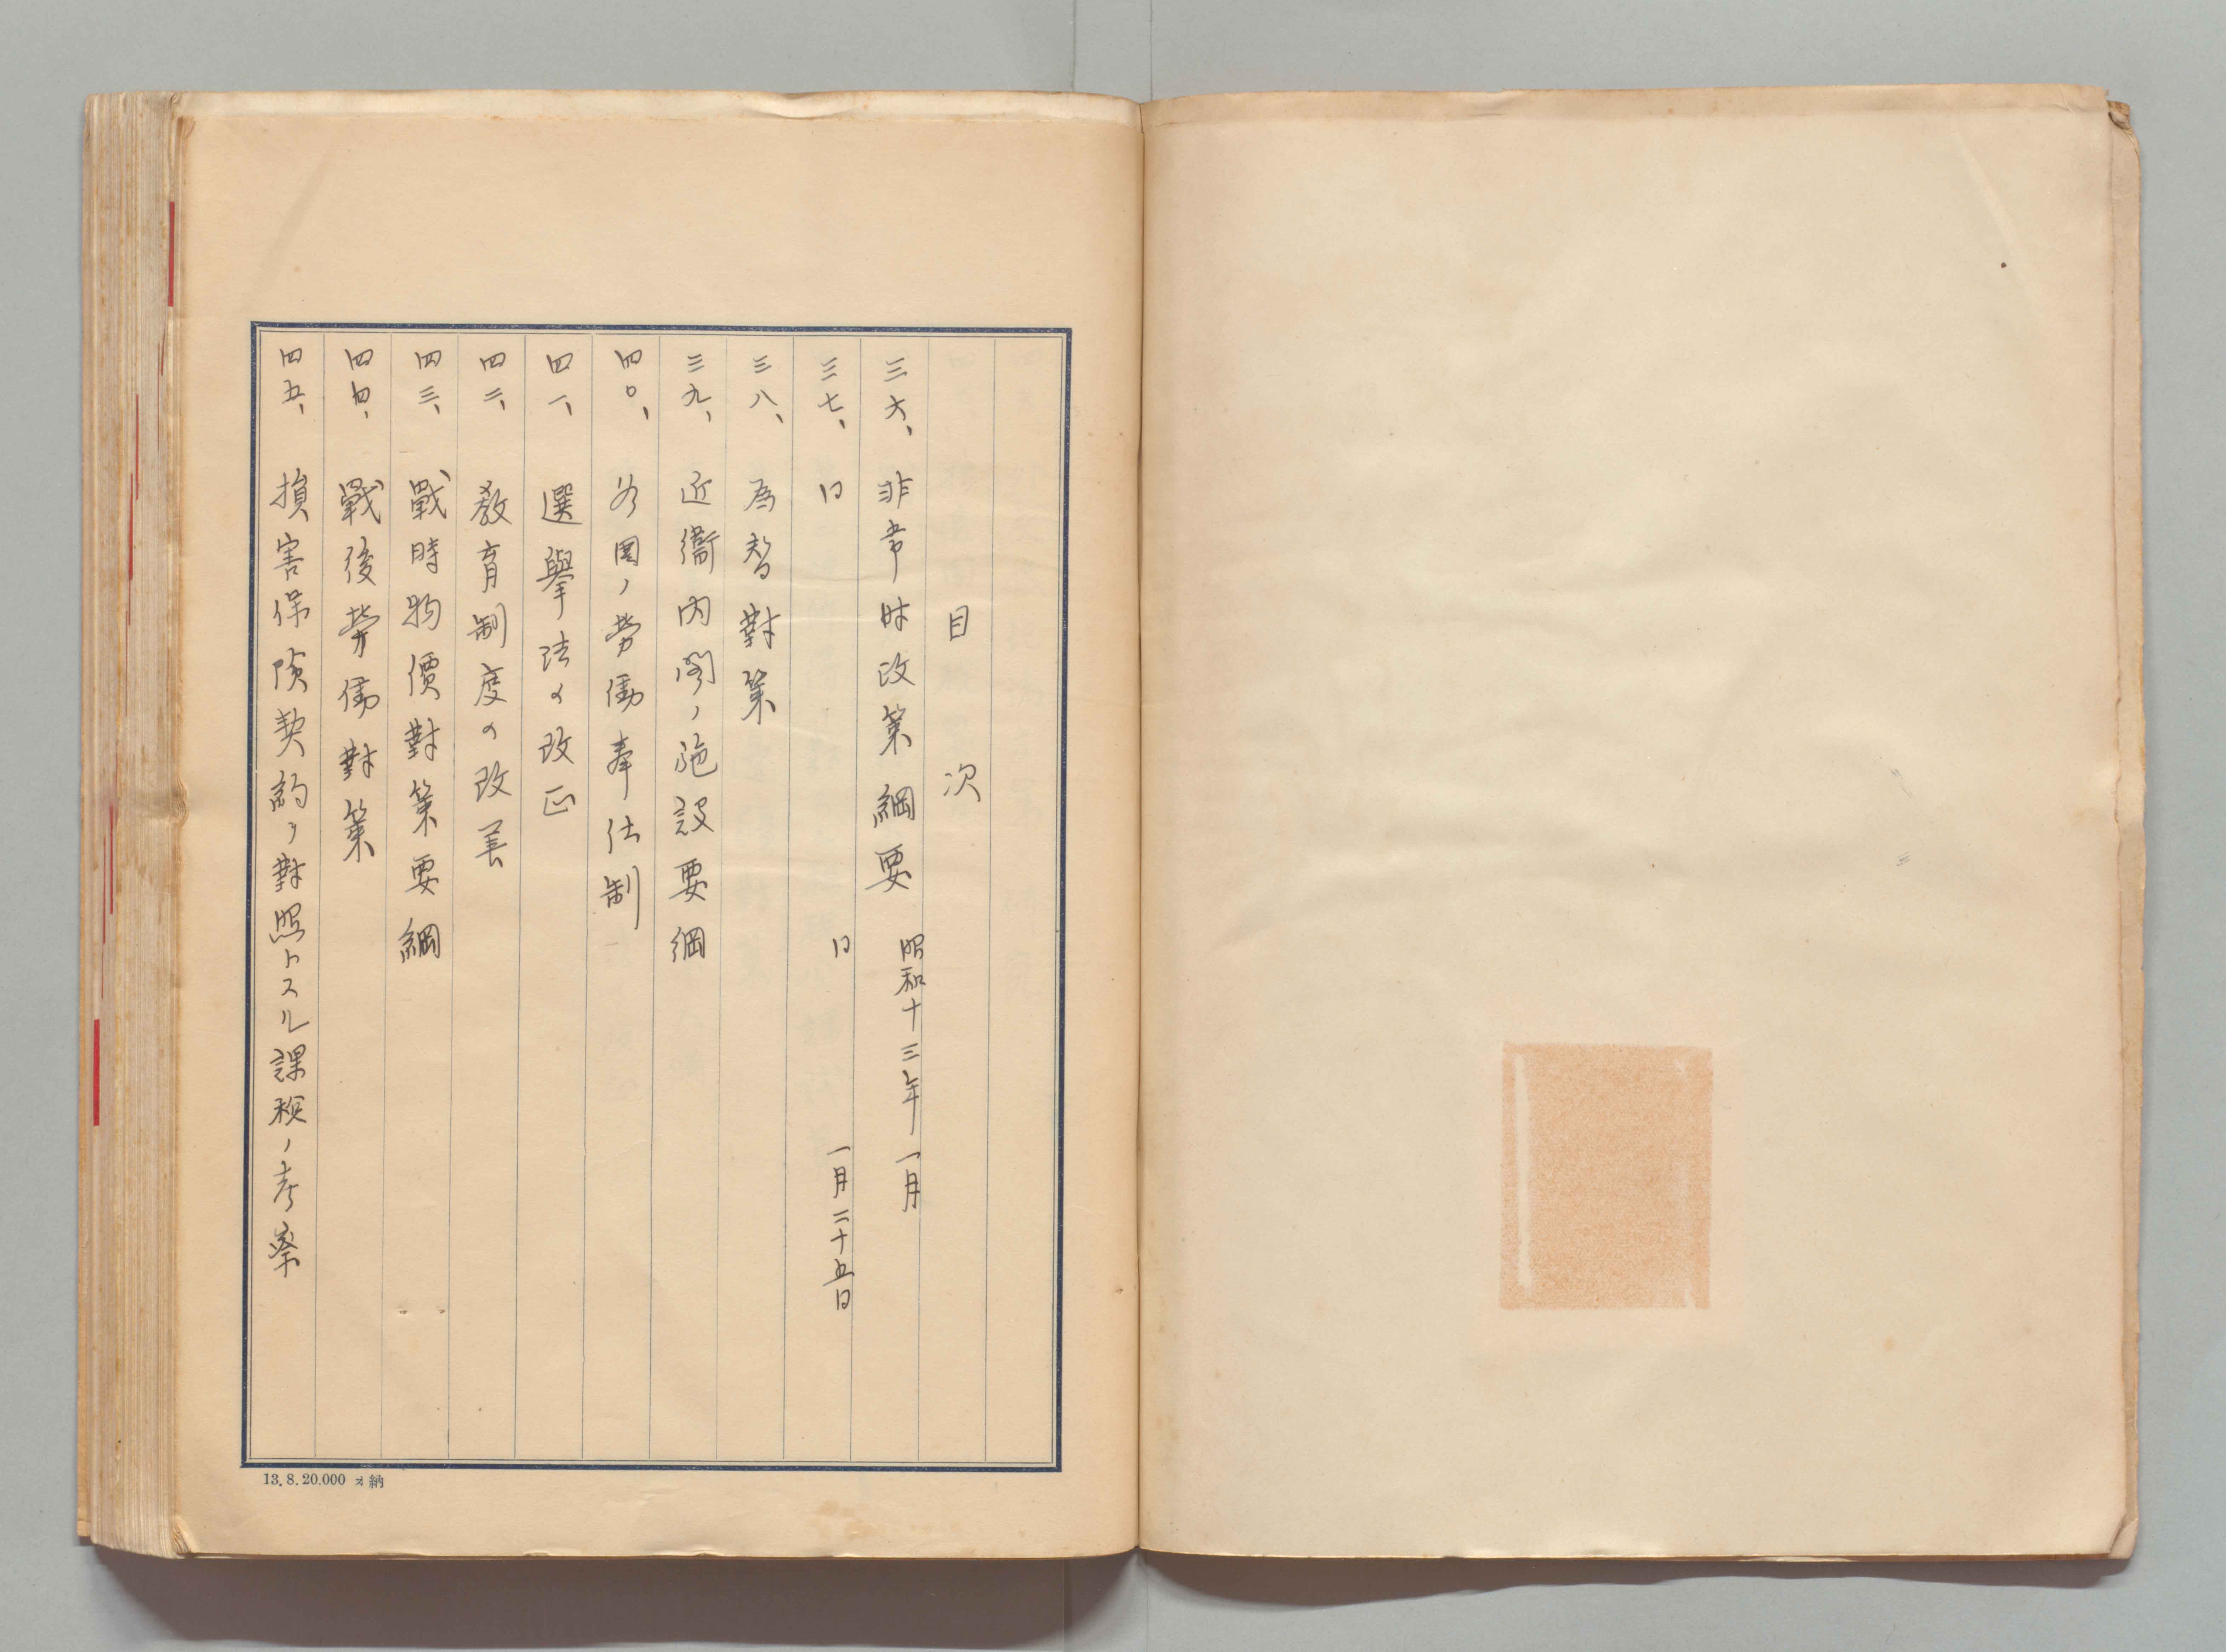 目次
三六、非常時政策綱要 昭和十三年一月
三七、〃 〃 一月二十五日
三八、為替對策
三九、近衞内閣ノ施設要綱
四〇、各国ノ労働奉仕制
四一、選擧法の改正
四二、教育制度の改善
四三、戰時物價對策要綱
四四、戰後労働對策
四五、損害保険契約ヲ對照トスル課税ノ考察
13.8.20.000 ォ納